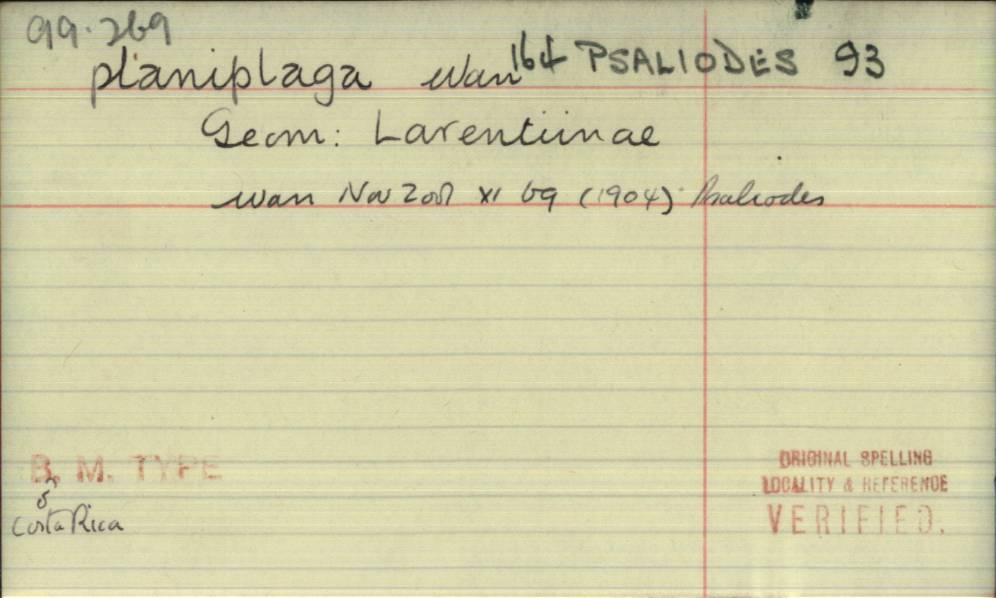 99.269
planiplaga Warr 164 PSALIODES 93
Geom: Larentiinae
Warr Nov Zool XI 69 (1904) Psaliodes
B. M. TYPE
♂
Costa Rica
ORIGINAL SPELLING
LOCALITY & REFERENCE
VERIFIED.